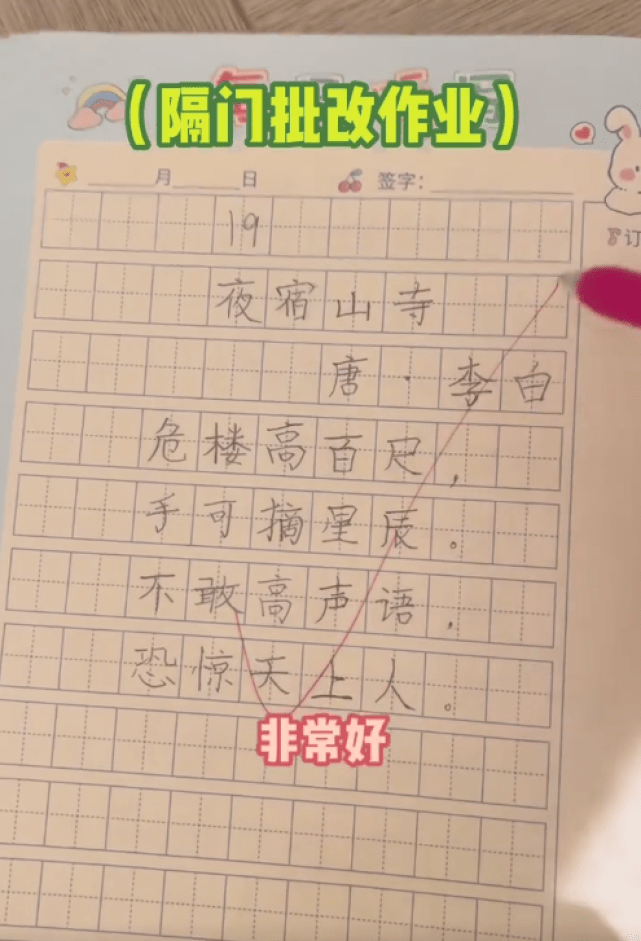 （隔门批改作业）
月 日 签字：
订
19
夜宿山寺
唐·李白
危楼高百尺，
手可摘星辰。
不敢高声语，
恐惊天上人。
非常好